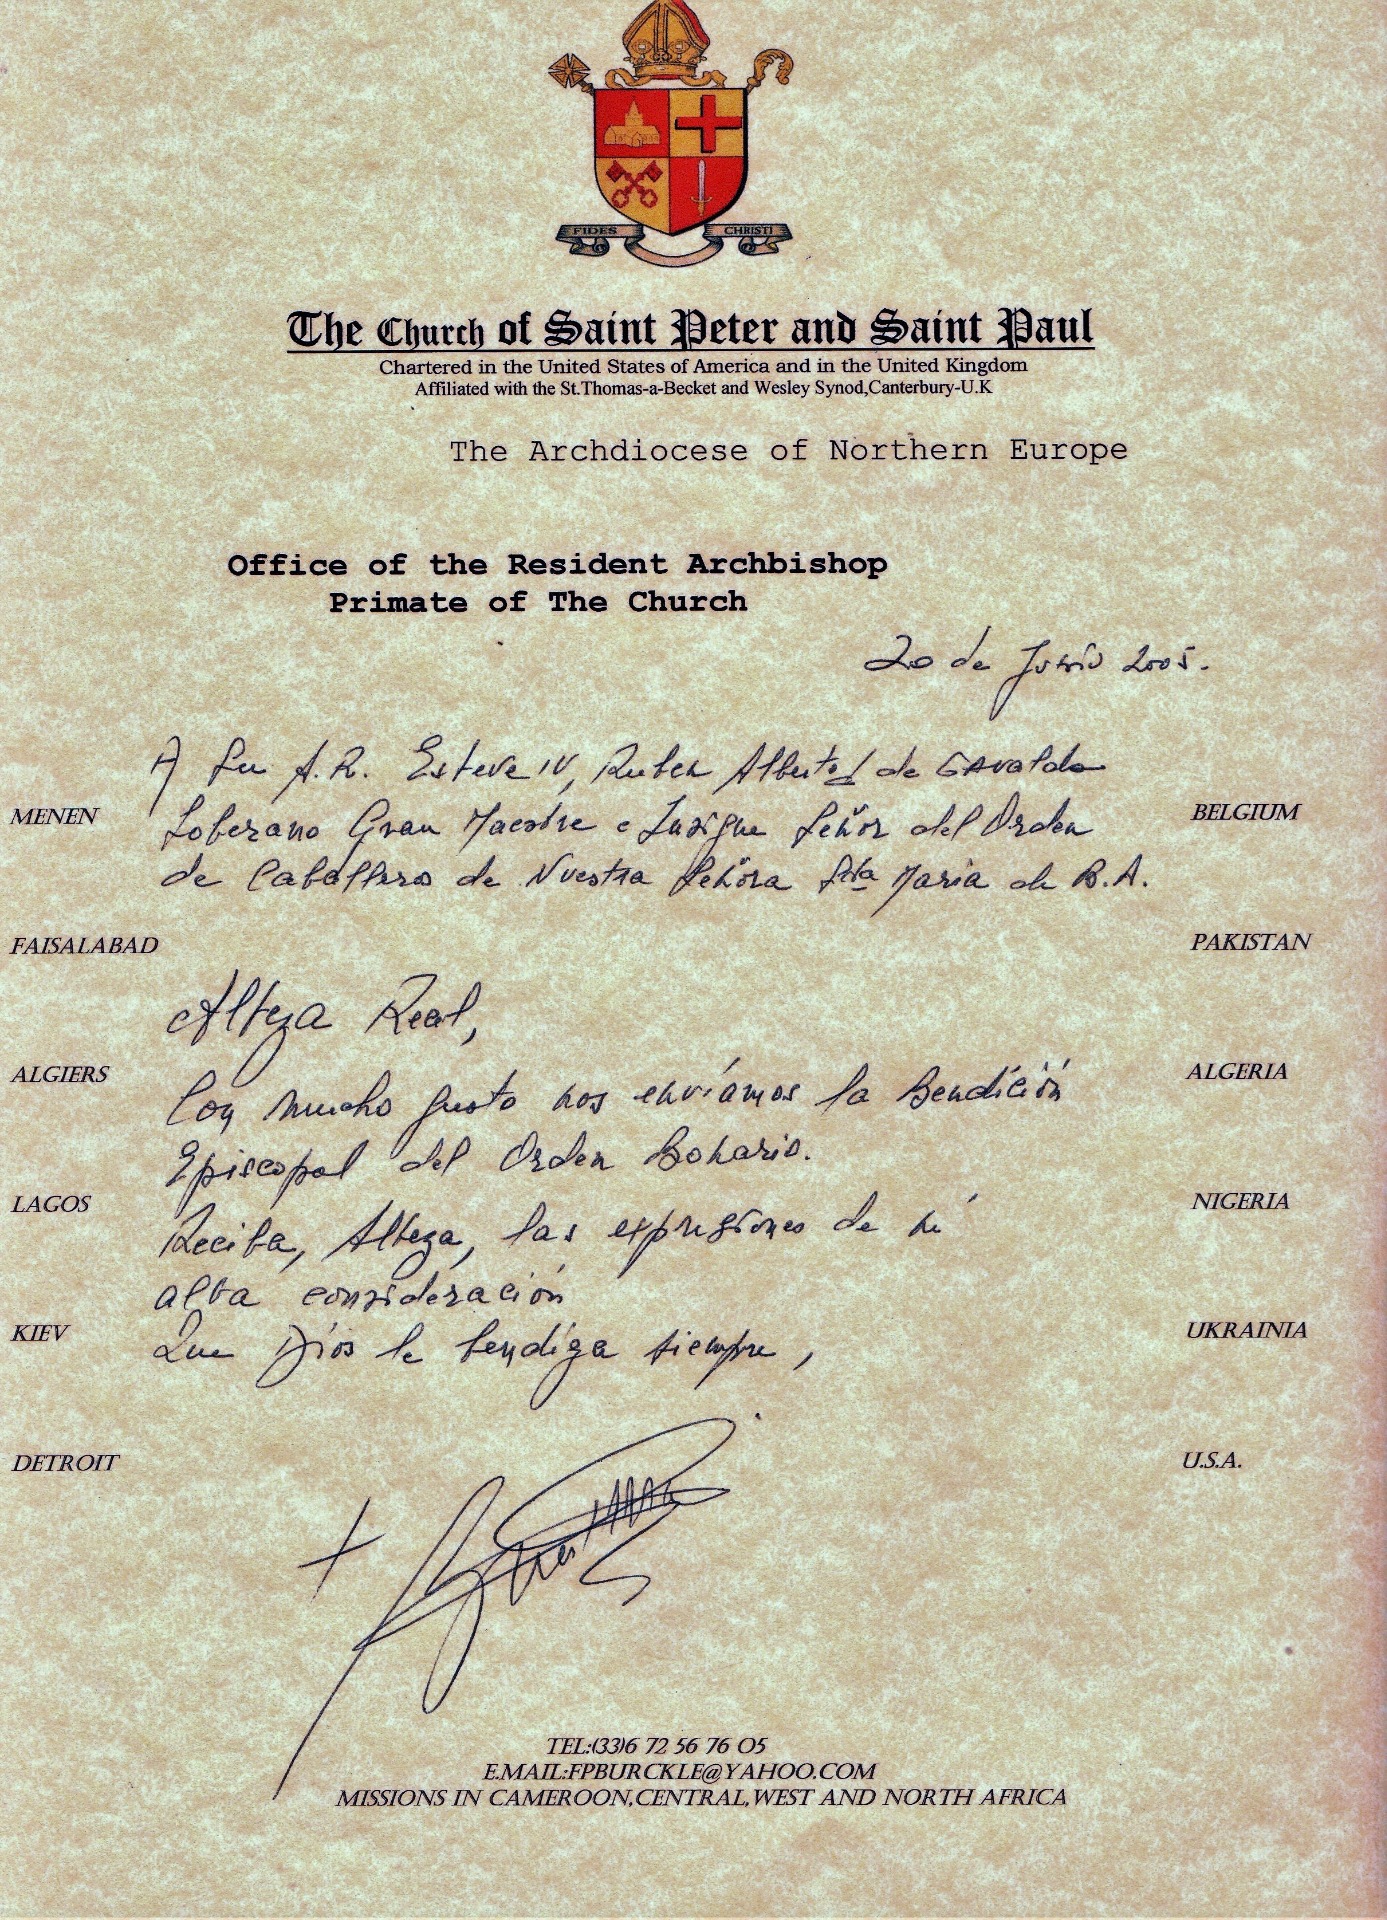 FIDES CHRISTI
The Church of Saint Peter and Saint Paul
Chartered in the United States of America and in the United Kingdom
Affiliated with the St.Thomas-a-Becket and Wesley Synod,Canterbury-U.K
The Archdiocese of Northern Europe
Office of the Resident Archbishop
Primate of The Church
20 de Junio 2005.
A Su A.R. Esteve IV, Ruben Alberto de Gavalda
MENEN
Soberano Gran Maestre e Insigne Señor del Orden
BELGIUM
de Caballeros de Nuestra Señora Sta Maria de B.A.
FAISALABAD
PAKISTAN
Alteza Real,
ALGIERS
ALGERIA
Con mucho gusto nos envíamos la Bendición
Episcopal del Orden Bonario.
LAGOS
NIGERIA
Reciba, Alteza, las expresiones de mi
alta consideración
KIEV
UKRAINIA
Que Dios le bendiga siempre,
DETROIT
U.S.A.
TEL:(33)6 72 56 76 05
E.MAIL:FPBURCKLE@YAHOO.COM
MISSIONS IN CAMEROON,CENTRAL,WEST AND NORTH AFRICA